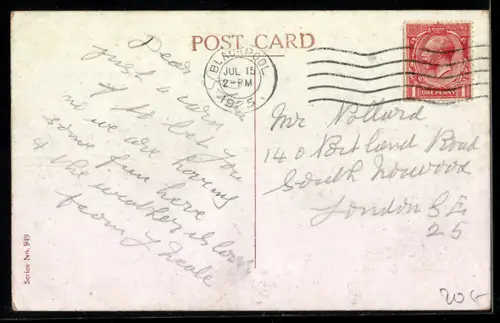 POST CARD
BLACKPOOL
JUL 15
2-PM
1925
ONE PENNY
Dear
just a
to let you
no we are having
some fun here
& the weather is
from J Neale
Mr Pollard
140 Portland Road
South Norwood
London S.E.
25
Series No. 949